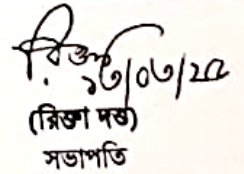 ১৩/০৩/২৫
(রিক্তা দত্ত)
সভাপতি